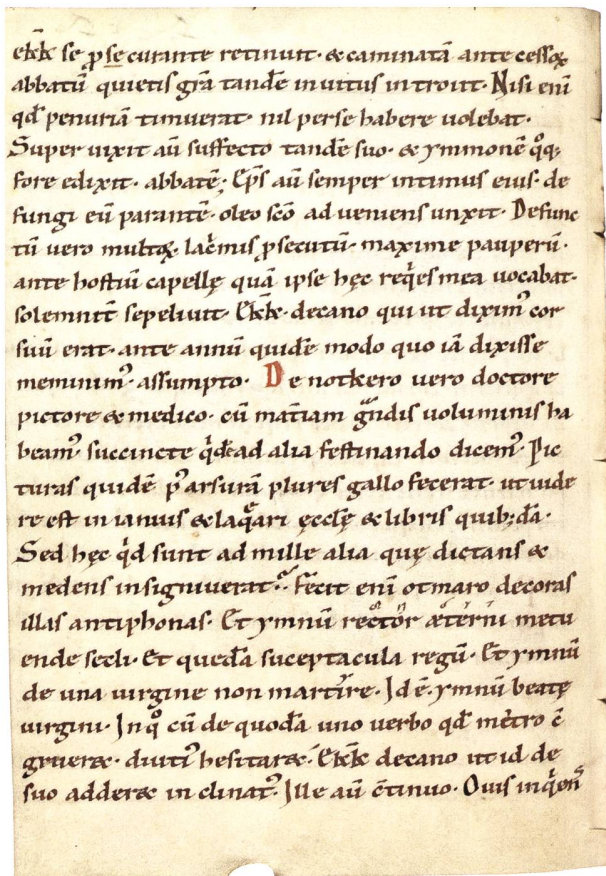 ekk̄ se ꝓ se curante retinuit· & caminatā ante cessoꝝ
abbatū quietis grā tandē inuitus introiit· Nisi enī
qđ penuriā timuerat· nil perse habere uolebat·
Super uixit aū suffecto tandē suo· & ymmonē qͦq;
fore edixit· abbatē; Ep̄s aū semper intimus eius· de
fungi eū parantē· oleo scō ad ueniens unxit· Defunc
tū uero multoꝝ· lacͥmis ꝓsecutū· maxime pauperū·
ante hostiū capellę quā ipse hęc reqͥes mea uocabat·
solemnit̄ sepeliuit· Ekk̄· decano qui ut diximꝰ cor
suū erat· ante annū quidē modo quo iā dixisse
meminimꝰ· assumpto· De notkero uero doctore
pictore & medico· cū mat̄iam gͣndis uoluminis ha
beamꝰ· succincte qͥdē ad alia festinando dicemꝰ· Pic
turas quidē pꝰ arsurā plures gallo fecerat· ut uide
re est in ianuis & laqͤari ęcclę & libris quib;dā·
Sed hęc qͥd sunt ad mille alia quę dictans &
medens insigniuerat· Fecit enī otmaro decoras
illas antiphonas· Et ymnū rector æterni metu
ende secli· Et quedā suceptacula regū· Et ymnū
de una uirgine non martire· Id ē· ymnū beatę
uirgini· In qͦ cū de quodā uno uerbo qđ metro c̄
gruer&· diutiꝰ hesitar&· Ekk̄ decano ut id de
suo adder& in clinatꝰ· Ille aū c̄tinuo· Ouis inqͥenſ